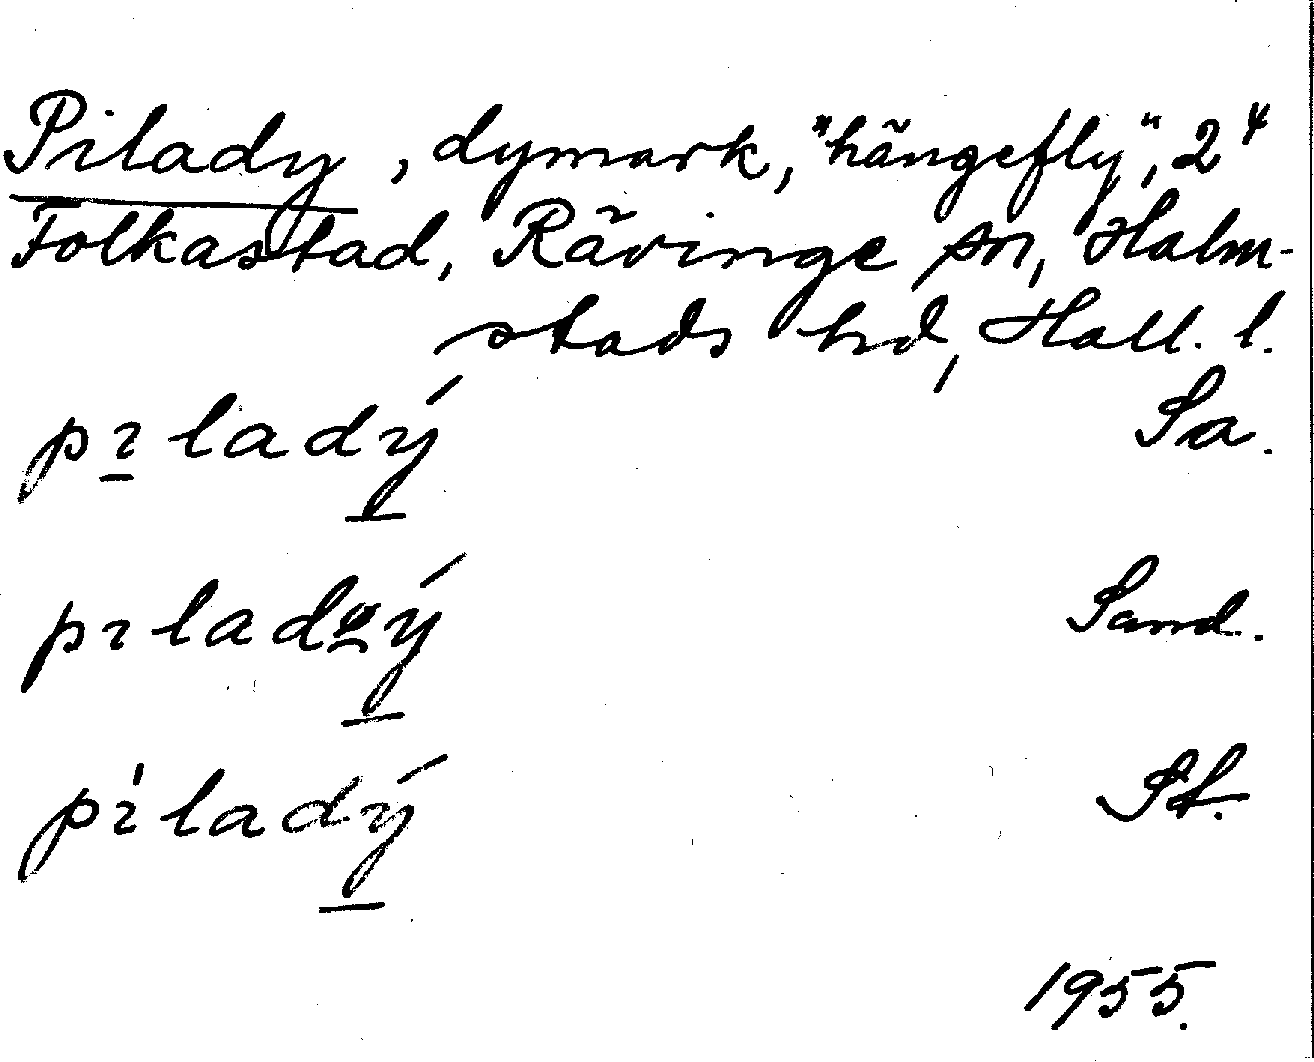 Pilady, dymark, "hängefly", 2⁴
Folkastad, Rävinge sn, Halm-
stads hd, Hall. l.
pıladý Sa.
pıladý Sand.
pı'ladý St.
1955.